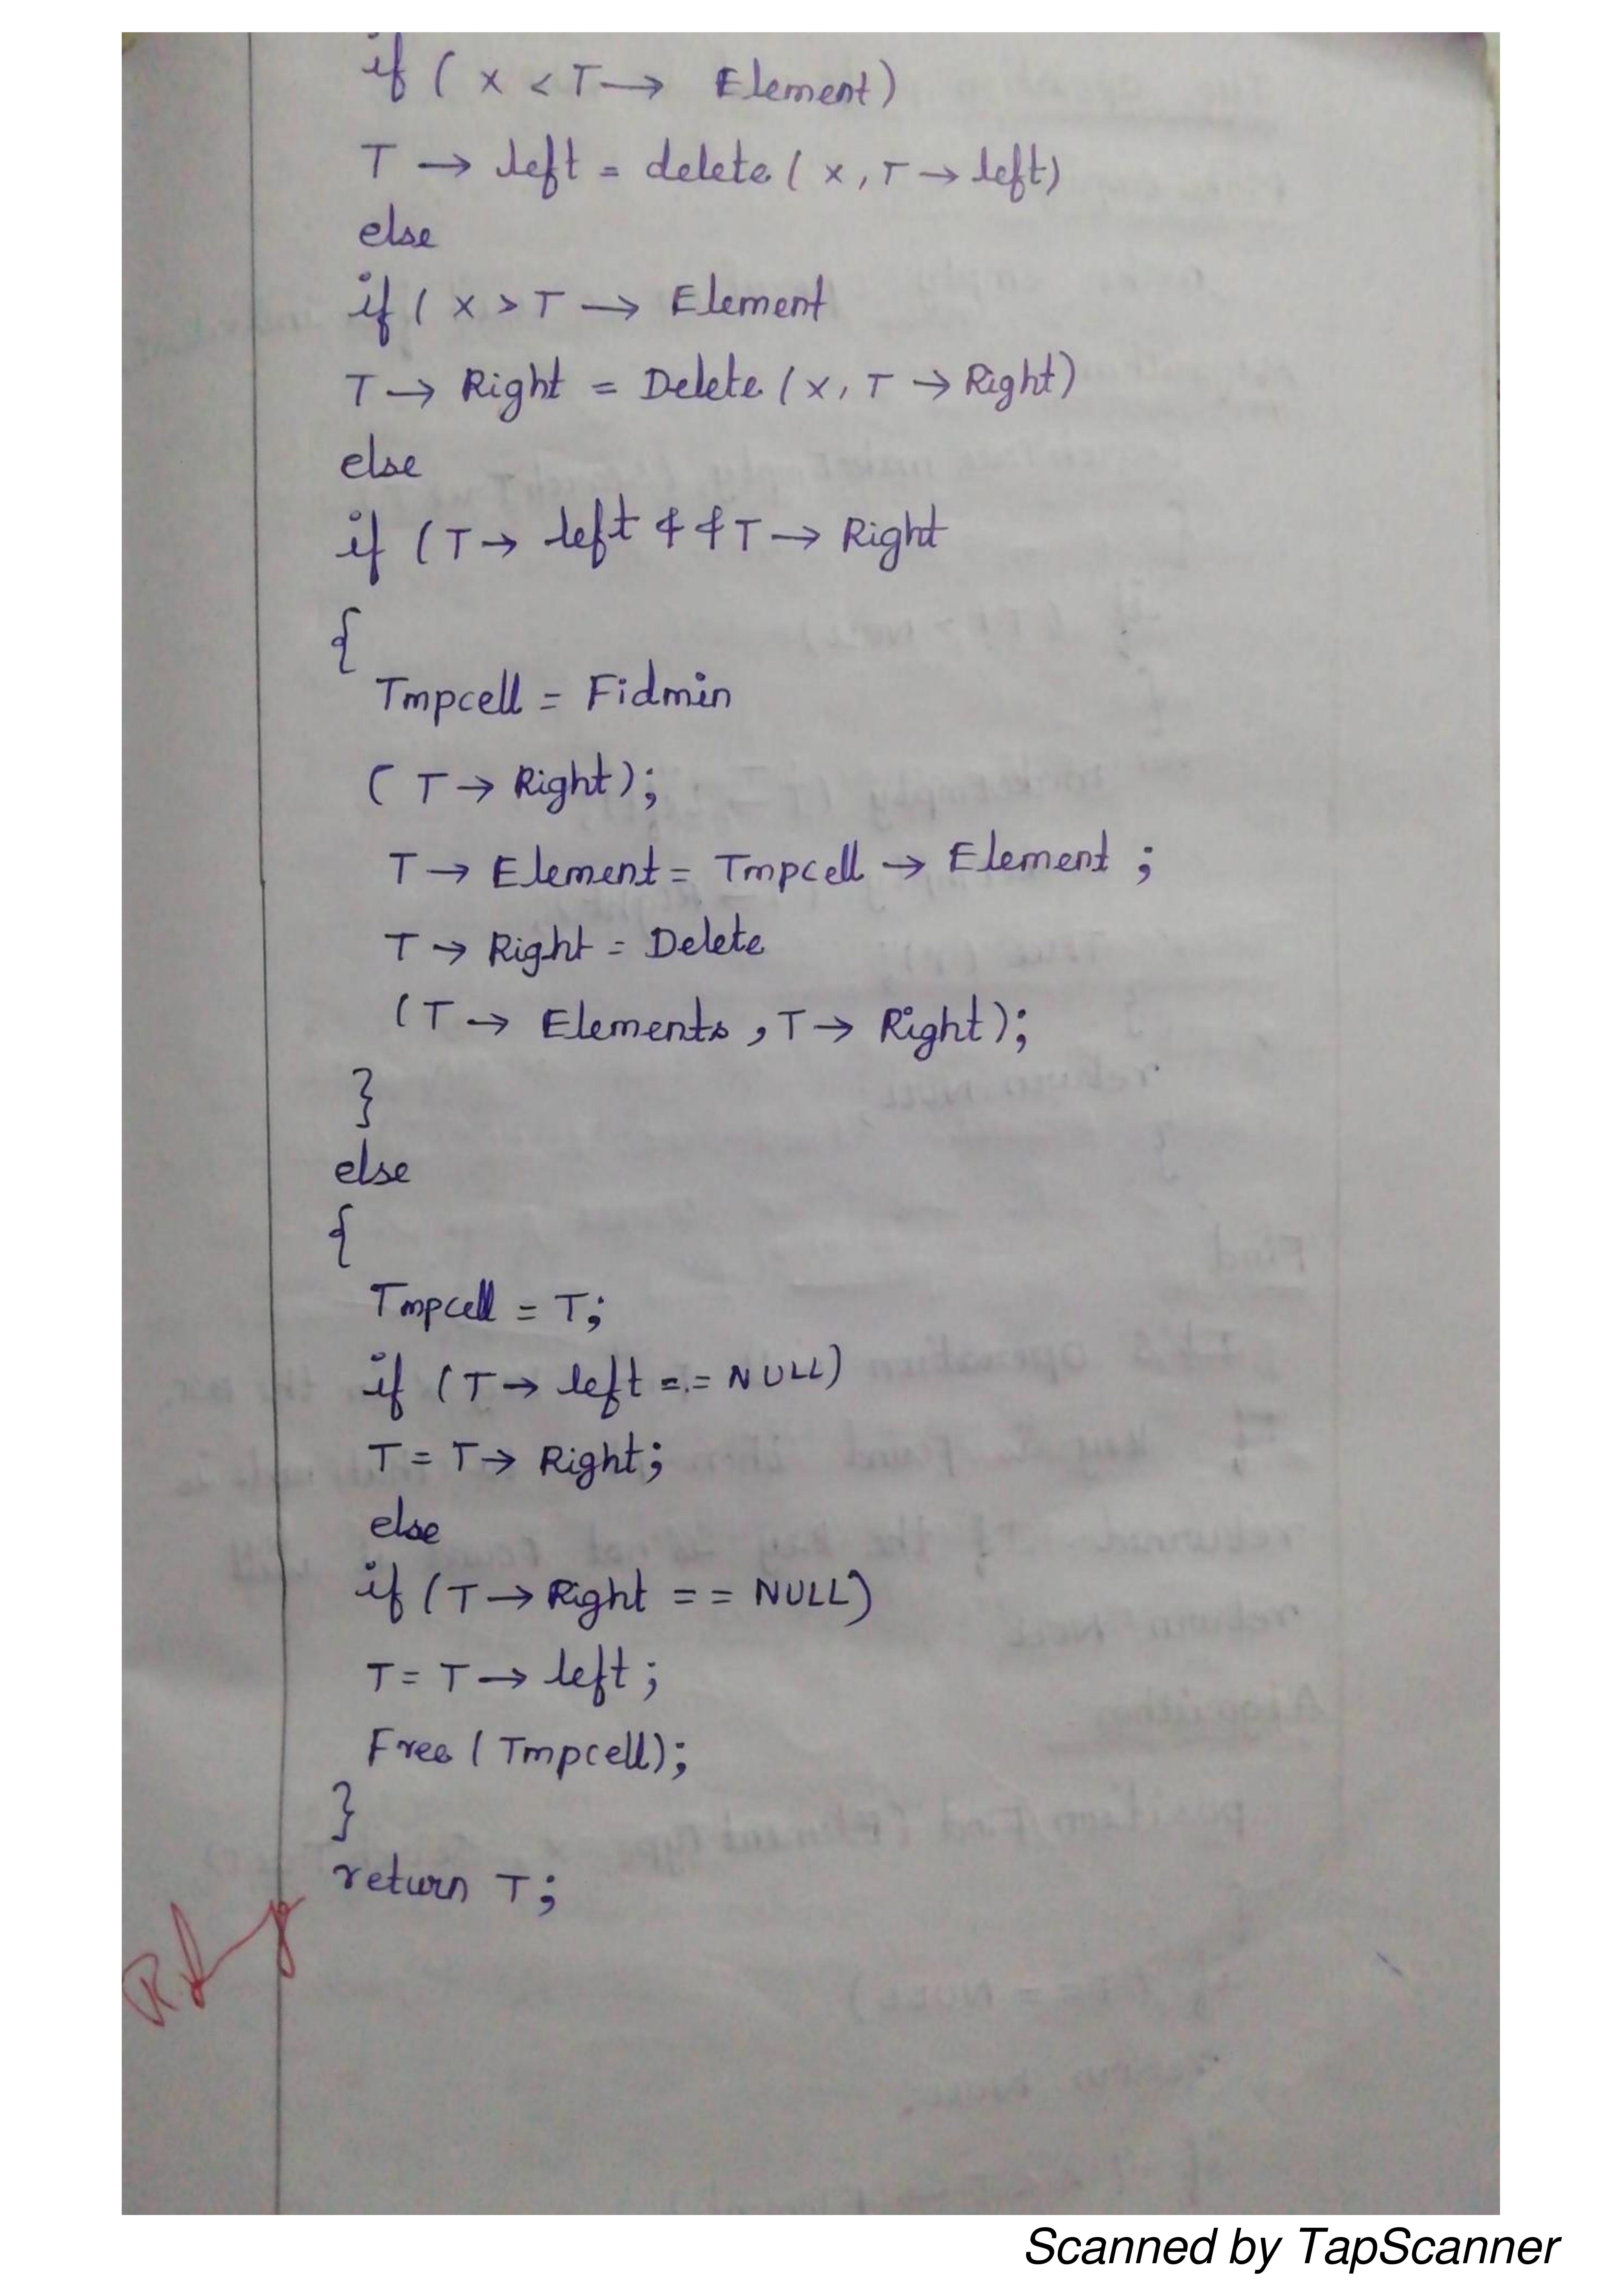 if ( x < T → Element)
T → left = delete ( x, T → left)
else
if ( x > T → Element
T → Right = Delete ( x, T → Right)
else
if ( T → left && T → Right
{
Tmpcell = Fidmin
( T → Right);
T → Element = Tmpcell → Element ;
T → Right = Delete
( T → Elements , T → Right);
}
else
{
Tmpcell = T;
if ( T → left == NULL)
T = T → Right;
else
if ( T → Right == NULL)
T = T → left ;
Free ( Tmpcell);
}
return T;
Scanned by TapScanner